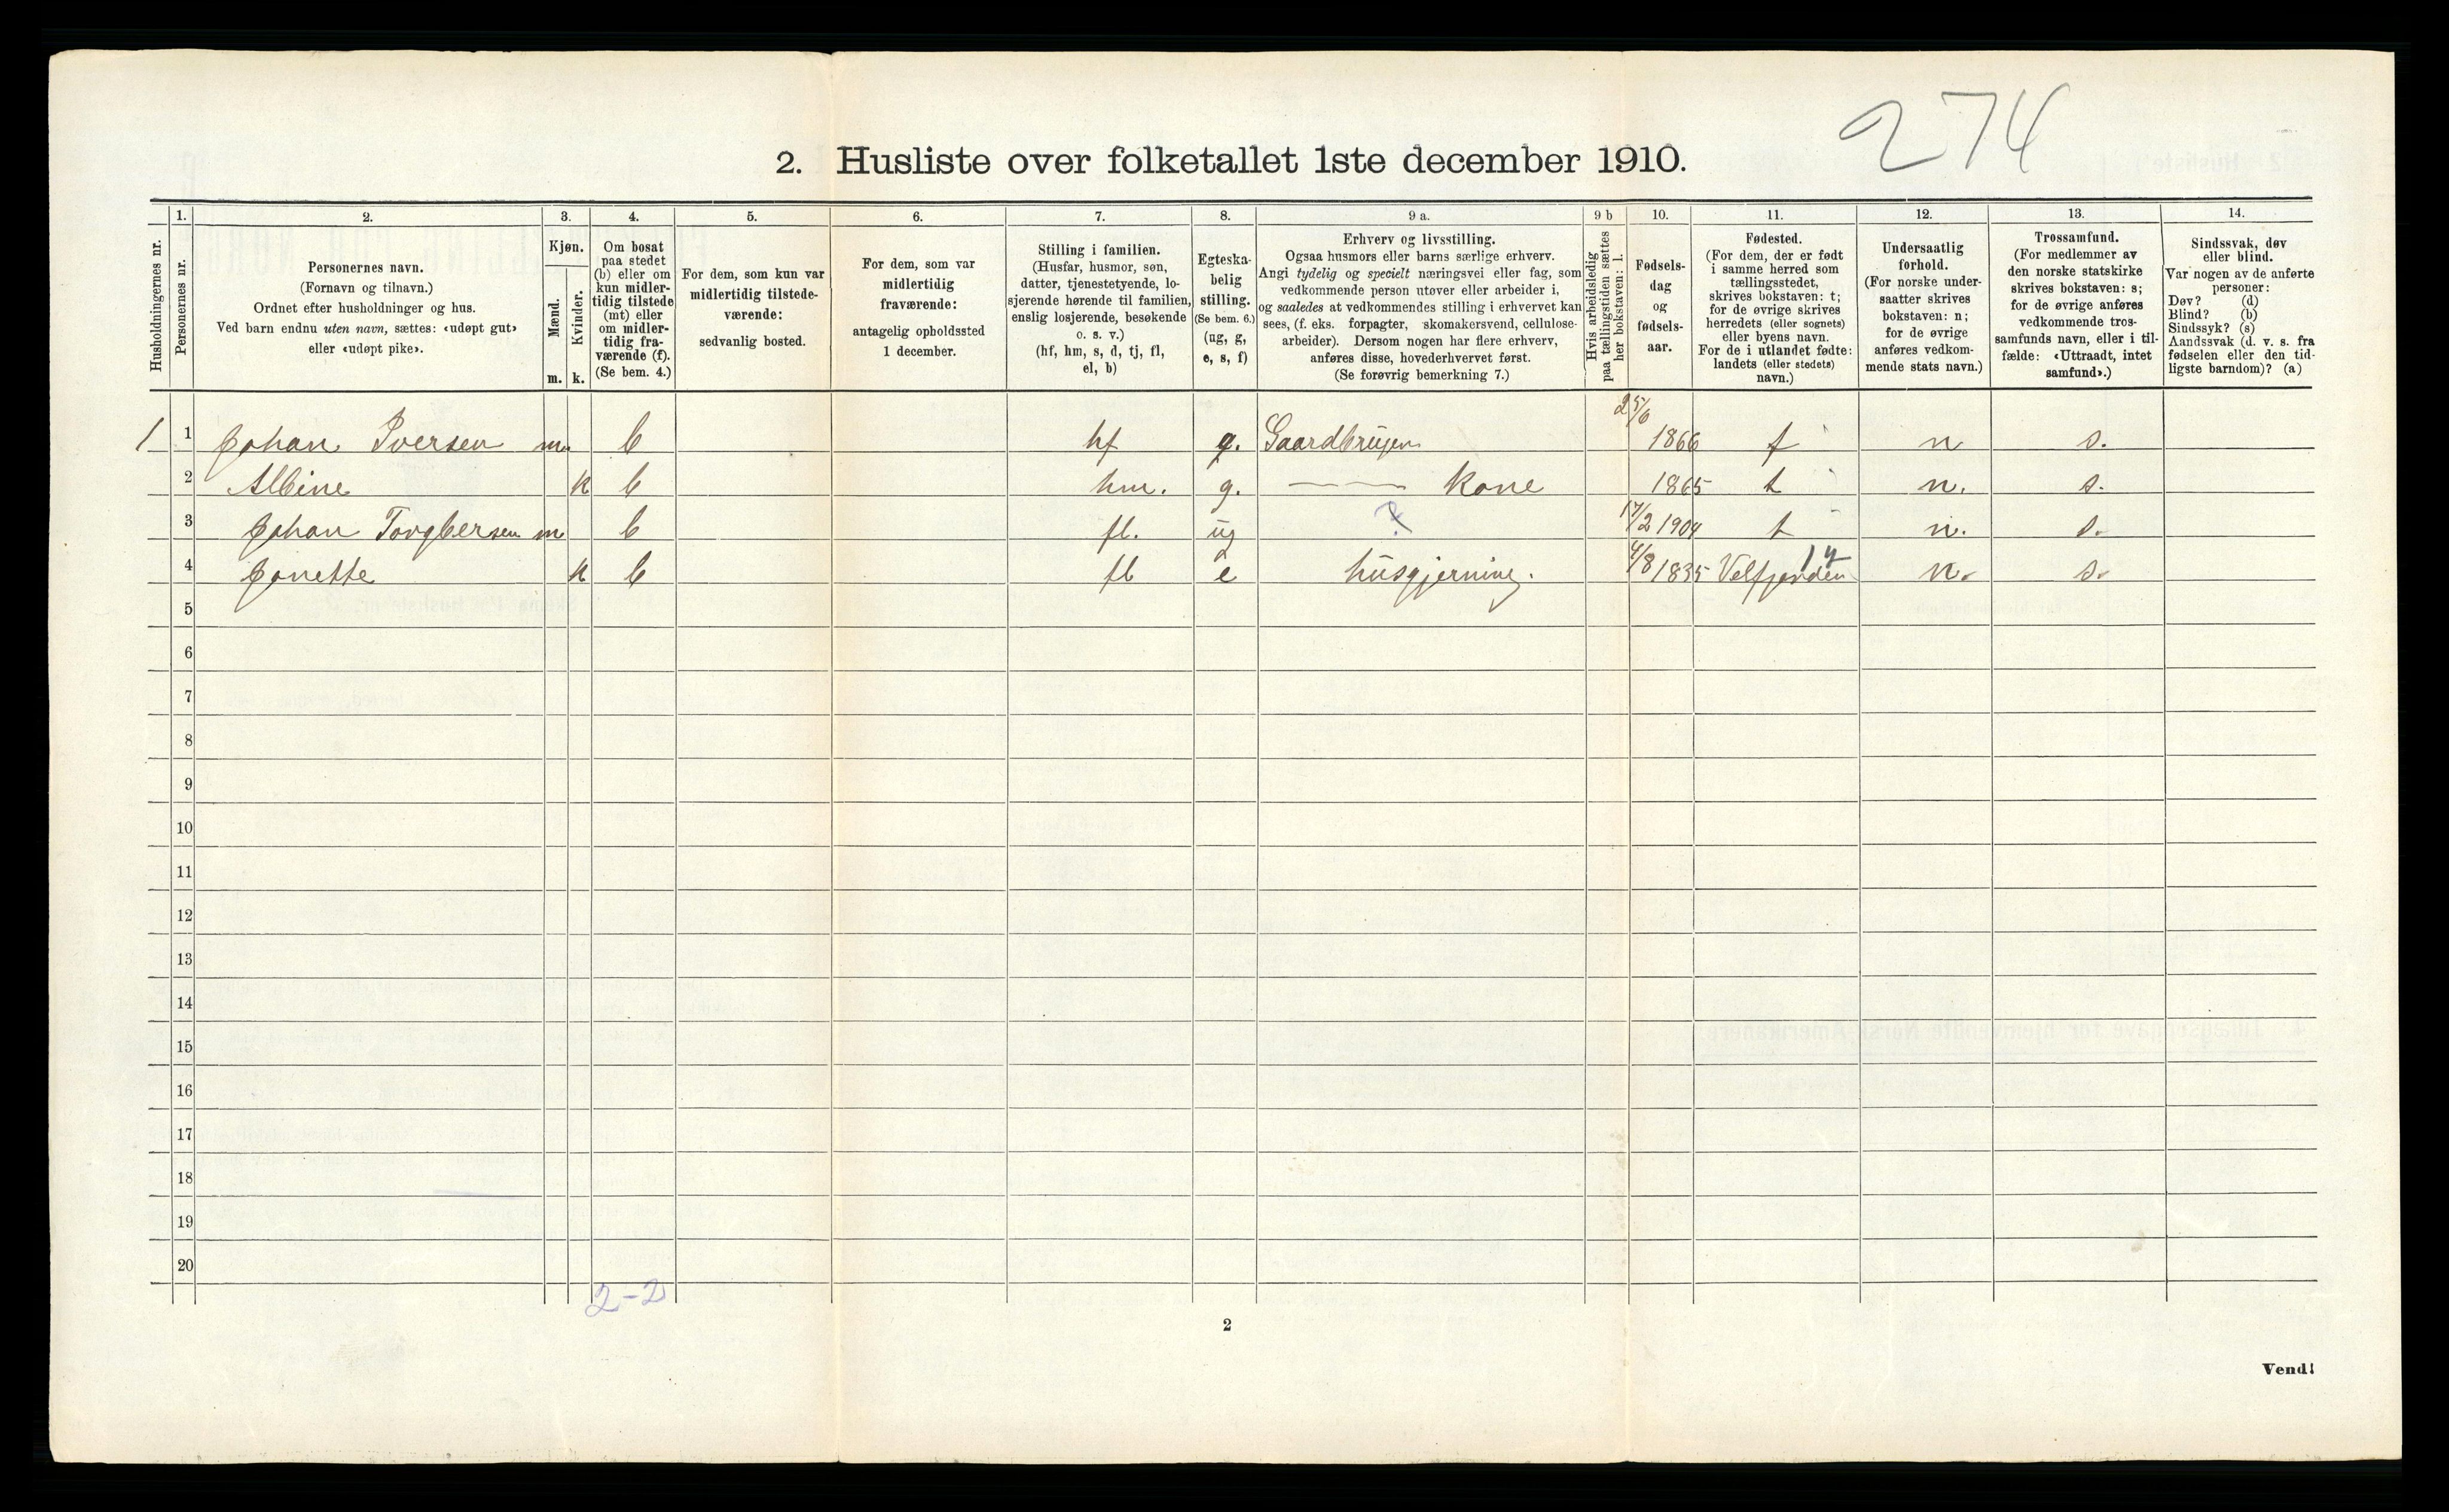 274
2. Husliste over folketallet 1ste december 1910.
Husholdningernes nr.
1.
Personernes nr.
2.
Personernes navn.
(Fornavn og tilnavn.)
Ordnet efter husholdninger og hus.
Ved barn endnu uten navn, sættes: «udøpt gut»
eller «udøpt pike».
3.
Kjøn.
Mænd.
Kvinder.
m. k.
4.
Om bosat
paa stedet
(b) eller om
kun midler-
tidig tilstede
(mt) eller
om midler-
tidig fra-
værende (f).
(Se bem. 4.)
5.
For dem, som kun var
midlertidig tilstede-
værende:
sedvanlig bosted.
6.
For dem, som var
midlertidig
fraværende:
antagelig opholdssted
1 december.
7.
Stilling i familien.
(Husfar, husmor, søn,
datter, tjenestetyende, lo-
sjerende hørende til familien,
enslig losjerende, besøkende
o. s. v.)
(hf, hm, s, d, tj, fl,
el, b)
8.
Egteska-
belig
stilling.
(Se bem. 6.)
(ug, g,
e, s, f)
9 a.
Erhverv og livsstilling.
Ogsaa husmors eller barns særlige erhverv.
Angi tydelig og specielt næringsvei eller fag, som
vedkommende person utøver eller arbeider i,
og saaledes at vedkommendes stilling i erhvervet kan
sees, (f. eks. forpagter, skomakersvend, cellulose-
arbeider). Dersom nogen har flere erhverv,
anføres disse, hovederhvervet først.
(Se forøvrig bemerkning 7.)
9 b
Hvis arbeidsledig
paa tællingstiden sættes
her bokstaven: l.
10.
Fødsels-
dag
og
fødsels-
aar.
11.
Fødested.
(For dem, der er født
i samme herred som
tællingsstedet,
skrives bokstaven: t;
for de øvrige skrives
herredets (eller sognets)
eller byens navn.
For de i utlandet fødte:
landets (eller stedets)
navn.)
12.
Undersaatlig
forhold.
(For norske under-
saatter skrives
bokstaven: n;
for de øvrige
anføres vedkom-
mende stats navn.)
13.
Trossamfund.
(For medlemmer av
den norske statskirke
skrives bokstaven: s;
for de øvrige anføres
vedkommende tros-
samfunds navn, eller i til-
fælde: «Uttraadt, intet
samfund».)
14.
Sindssvak, døv
eller blind.
Var nogen av de anførte
personer:
Døv? (d)
Blind? (b)
Sindssyk? (s)
Aandssvak (d. v. s. fra
fødselen eller den tid-
ligste barndom)? (a)
1 1 Johan Iversen m. b hf g. Gaardbruger 25/6 1866 t n s.
2 Albine k b hm. g. —— kone 1865 t n. s.
3 Johan Torgbersen m b fl. ug ? 17/2 1904 t n. s.
4 Jonette k b fl e husgjerning. 4/8 1835 Velfjorden n. s.
5
6
7
8
9
10
11
12
13
14
15
16
17
18
19
20
2-2
2
Vend!